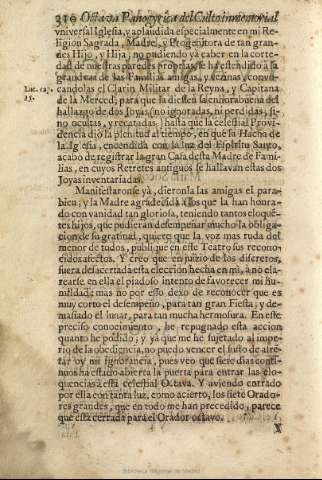 310 Octava Panegyrica del Culto inmemorial
vniversal Iglesia, y aplaudida especialmente en mi Re-
ligion Sagrada, Madre, y Progenitora de tan gran-
des Hijo, y Hija; no pudiendo yà caber en la corte-
dad de nuestras paredes proprias, se ha estendido à la
grandeza de las Familias amigas, y vezinas, convo-
Luc. 15.
candolas el Clarin Militar de la Reyna, y Capitana
de la Merced, para que la diessen la enhorabuena del
hallazgo de dos Joyas, no ignoradas, ni perdidas, si-
no ocultas, y recatadas; hasta que la celestial Provi-
dencia diò la plenitud al tiempo, en que la Hacha de
la Iglesia, encendida con la luz del Espiritu Santo,
acabò de registrar la gran Casa desta Madre de Fami-
lias, en cuyos Retretes antiguos se hallavan estas dos
Joyas inventariadas.
Manifestaronse yà, dieronla las amigas el para-
bien, y la Madre agradecida à los que la han honra-
do con vanidad tan gloriosa, teniendo tantos eloquē-
tes hijos, que pudieran desempeñar mucho la obliga-
cion de su gratitud, quiere que la voz mas ruda del
menor de todos, publique en este Teatro sus recono-
cidos afectos. Y creo que en juizio de los discretos,
fuera desacertada esta eleccion hecha en mi, à no cla-
rearse en ella el piadoso intento de favorecer mi hu-
mildad; mas no por esso dexo de reconocer que es
muy corto el desempeño, para tan gran Fiesta, y de-
masiado el lunar, para tan mucha hermosura. En este
preciso conocimiento, he repugnado esta accion
quanto he podido, y yà que me he sujetado al impe-
rio de la obediencia, no puedo vencer el susto de aler-
tar oy mi ignorancia, pues veo que siete dias conti-
nuos ha estado abierta la puerta para entrar las elo-
quencias à esta celestial Octava. Y aviendo entrado
por ella con tanta luz, como acierto, los siete Orado-
res grandes, que en todo me han precedido, parece
que està cerrada para el Orador octavo.
X
Biblioteca Nacional de Madrid